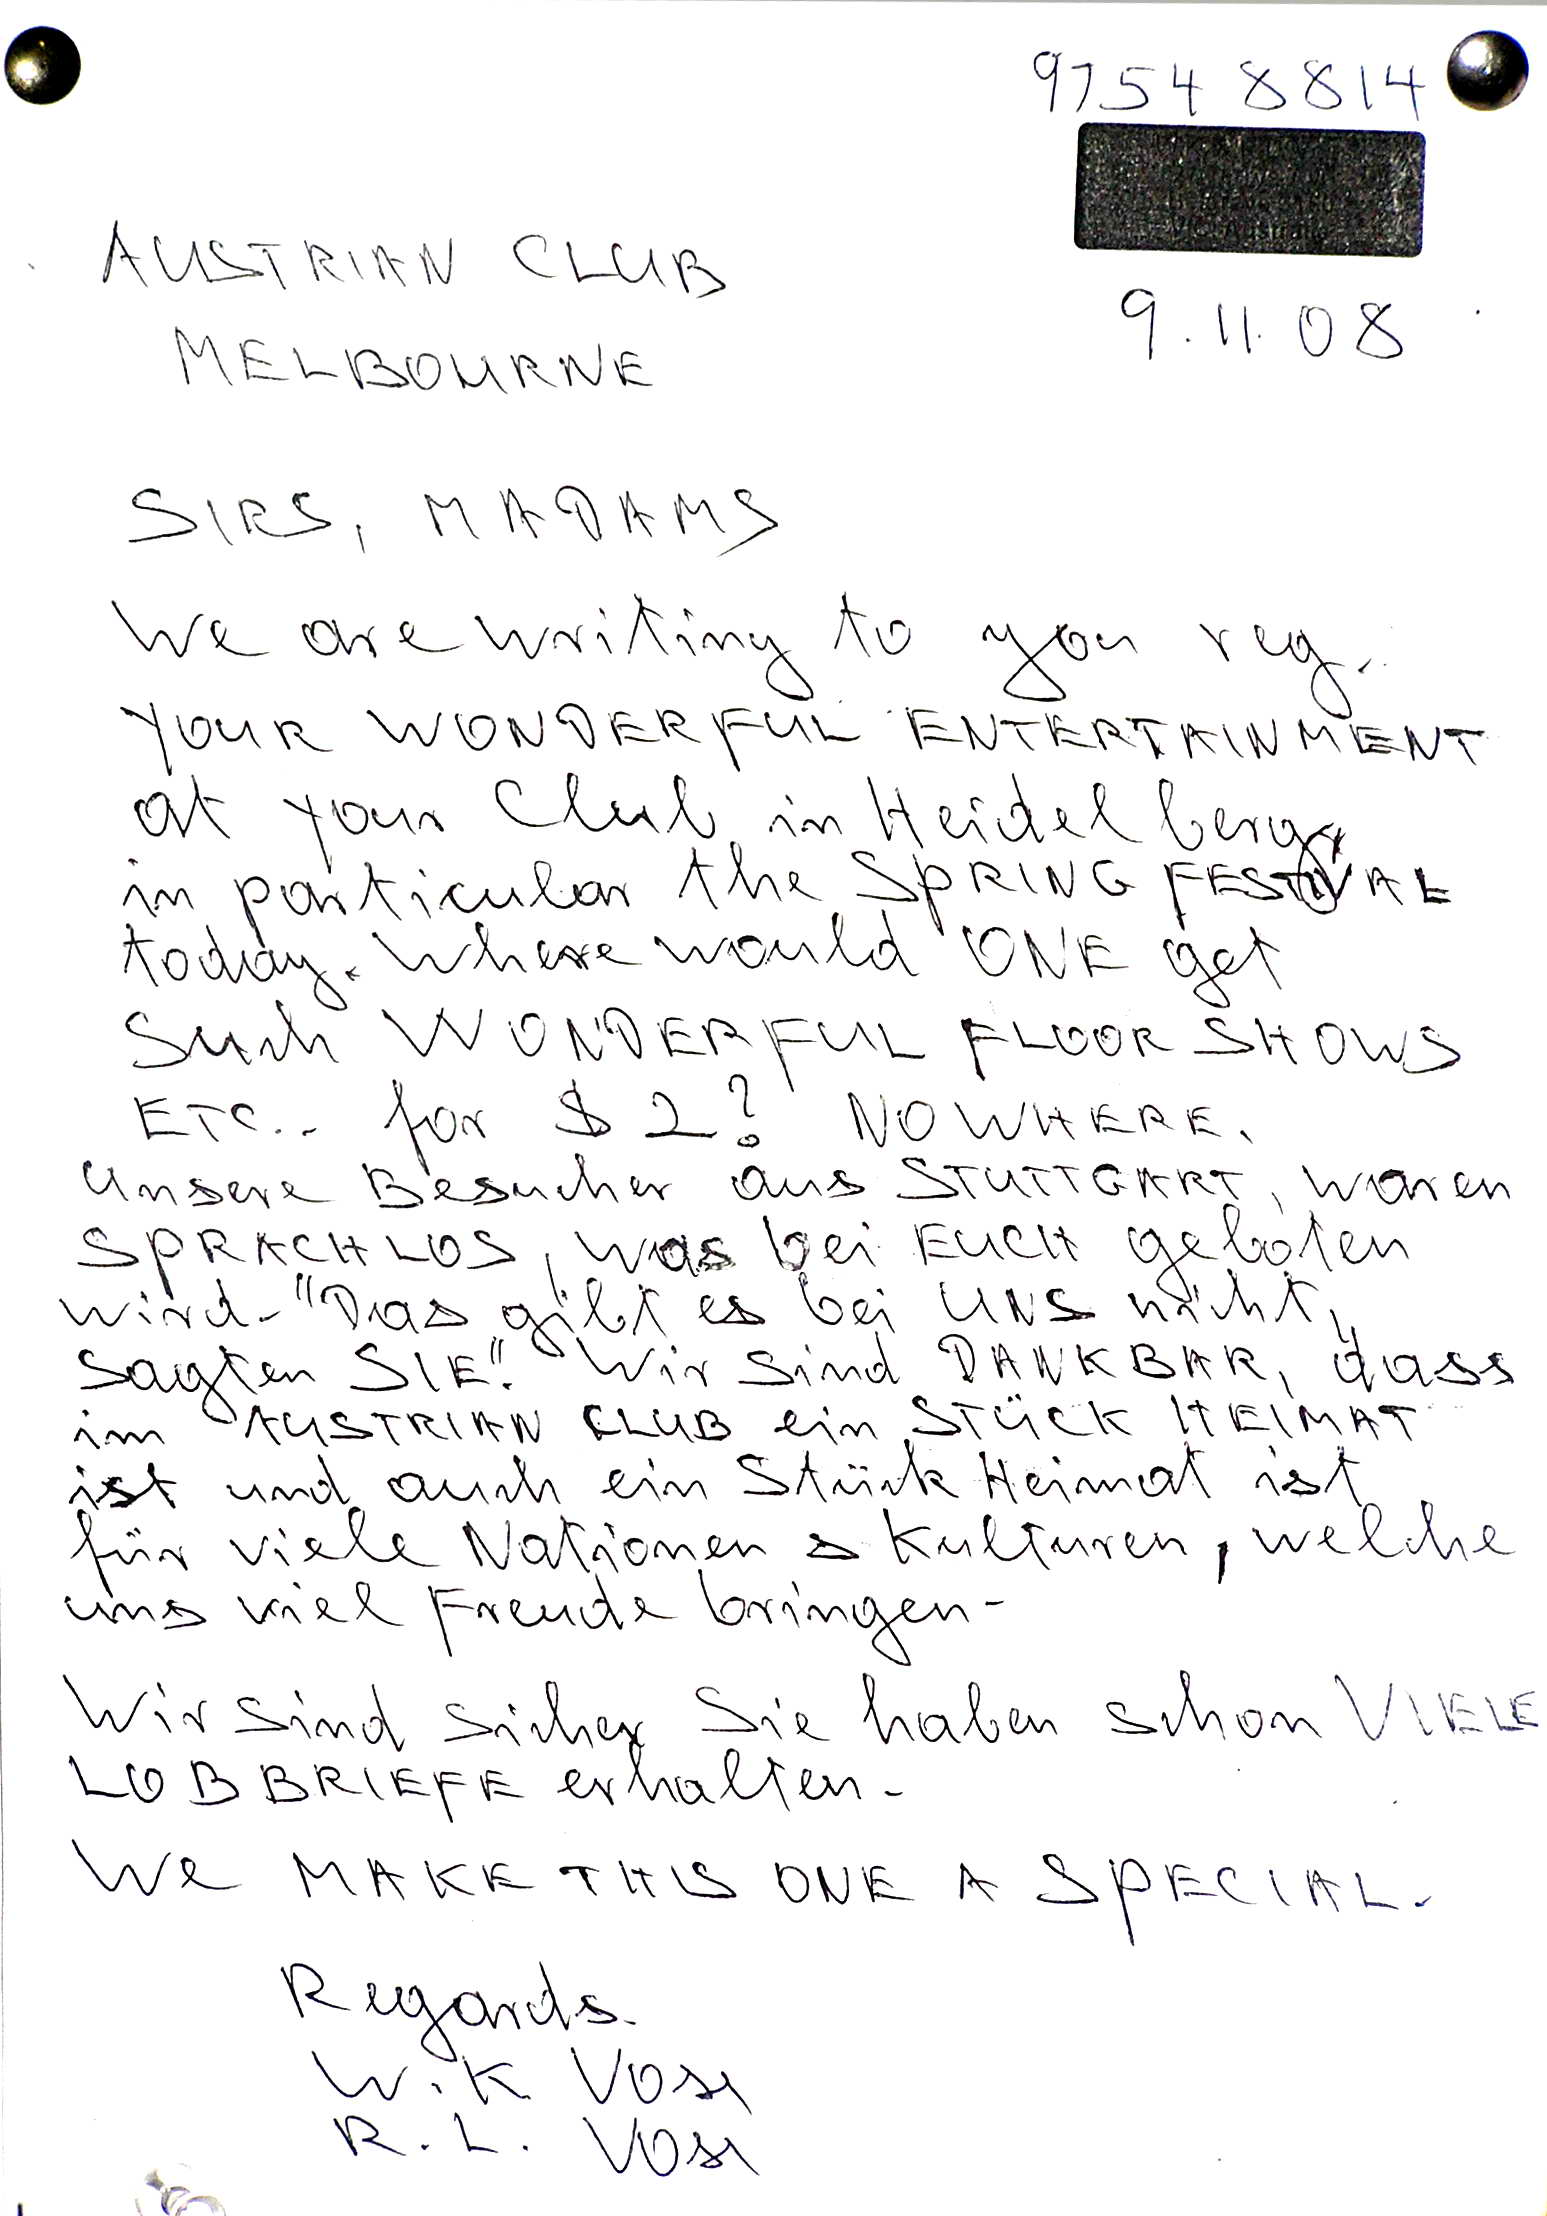 9754 8814
AUSTRIAN CLUB
9.11.08
MELBOURNE
SIRS, MADAMS
We are writing to you reg.
YOUR WONDERFUL ENTERTAINMENT
at your Club in Heidelberg,
in particular the SPRING FESTIVAL
today. Where would ONE get
Such WONDERFUL FLOOR SHOWS
ETC.. for $2? NOWHERE.
Unsere Besucher aus STUTTGART, waren
SPRACHLOS, was bei EUCH geboten
wird- "Das gibt es bei UNS nicht,
sagten SIE". Wir sind DANKBAR, dass
im AUSTRIAN CLUB ein STÜCK HEIMAT
ist und auch ein Stück Heimat ist
für viele Nationen & Kulturen, welche
uns viel Freude bringen-
Wir sind sicher Sie haben schon VIELE
LOBBRIEFE erhalten-
We MAKE THIS ONE A SPECIAL.
Regards.
W.K. 
R.L.